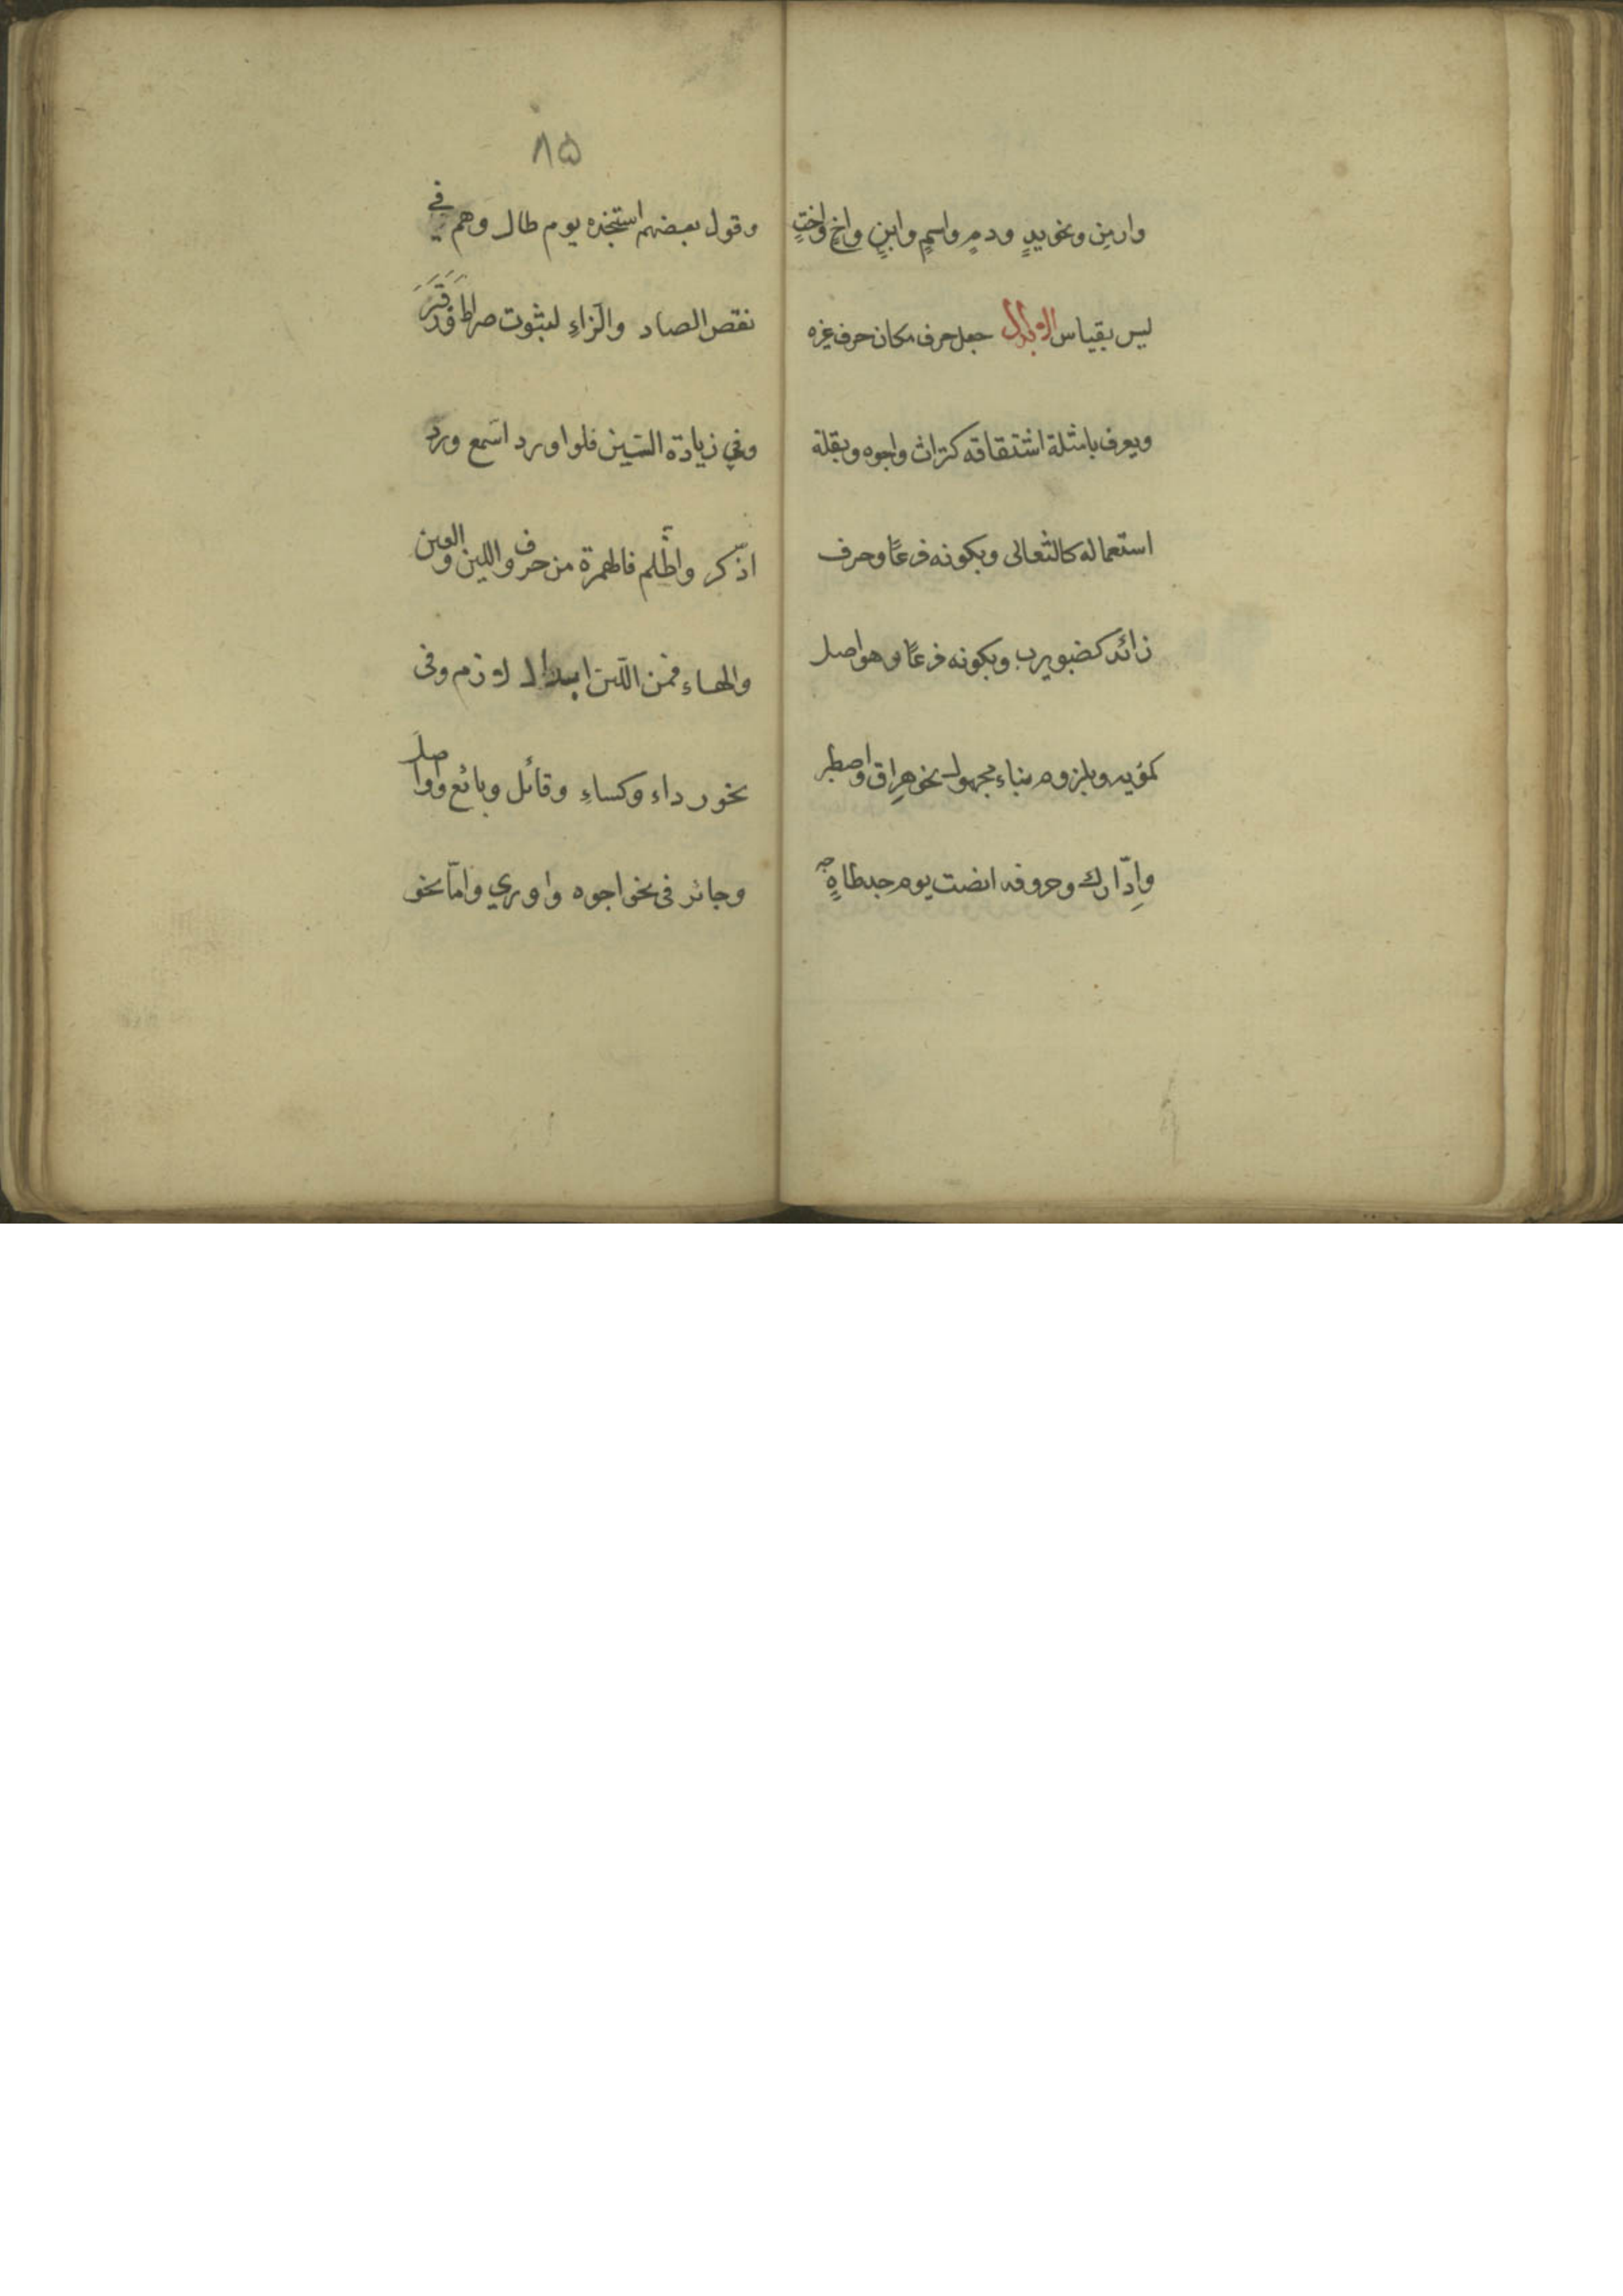 وارمِن ونحو يدٍ ودمٍ واسمٍ وابنٍ واخٍ واختٍ
ليس بقياس الابدال جعل حرف مكان حرف غيره
ويعرف بامثلة اشتقاقه كتراث واجوه وبقلة
استعماله كالثعالى وبكونه فرعًا وحرف
زائد كضويرب وبكونه فرعًا وهو اصل
كمويه وبلزوم بناء مجهول نحو هراق واصطبر
وادّارك وحروفه انصت يوم جد طاهٍ
٨۵
وقول بعضهم استنجده يوم طال وهم في
نقص الصاد والزاءِ لثبوت صراط وزقر
وفي زيادة السّين فلو اورد اسّمع ورد
اذّكر واظّلم فالهمزة من حروف اللين والعين
والهاء فمن اللّين ابدال لازم وفى
نحو رداء وكساءِ وقائل وبائع واواصل
وجائز فى نحو اجوه واوري وامّا نحو